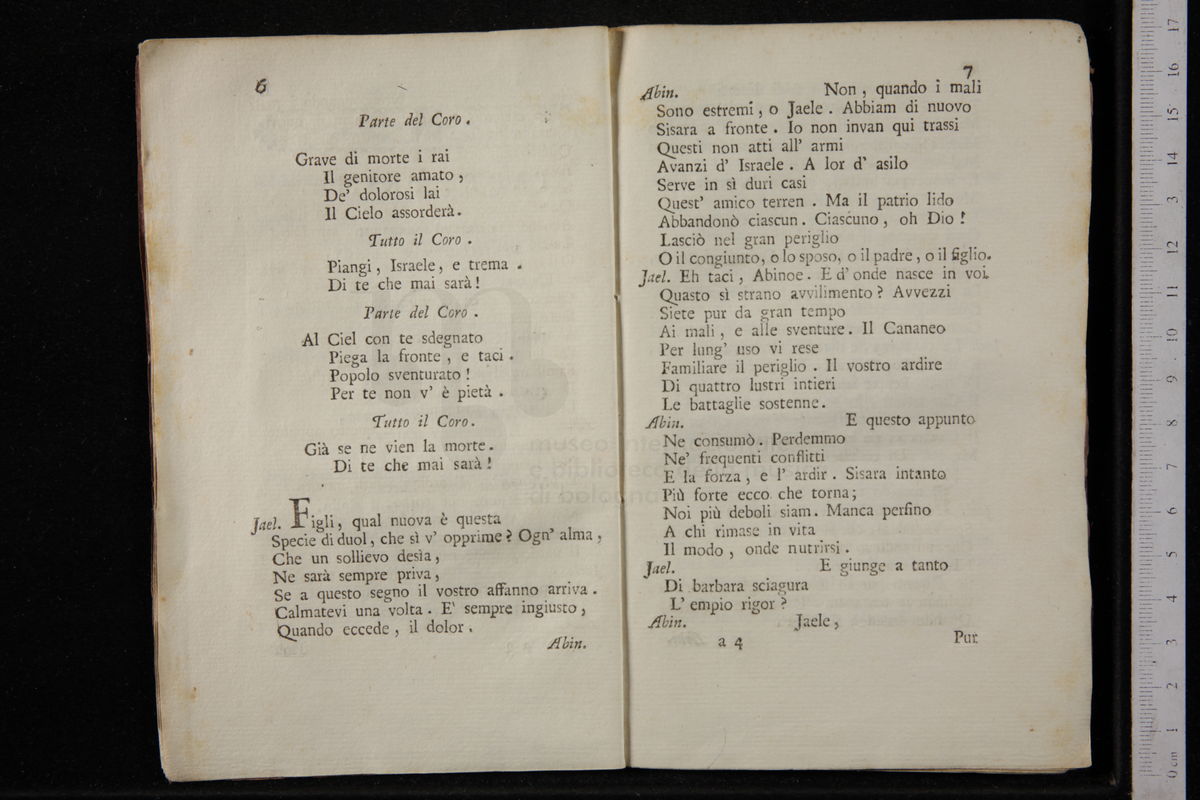 6
Parte del Coro.
Grave di morte i rai
Il genitore amato,
De' dolorosi lai
Il Cielo assorderà.
Tutto il Coro.
Piangi, Israele, e trema.
Di te che mai sarà!
Parte del Coro.
Al Ciel con te sdegnato
Piega la fronte, e taci.
Popolo sventurato!
Per te non v' è pietà.
Tutto il Coro.
Già se ne vien la morte.
Di te che mai sarà!
Jael. Figli, qual nuova è questa
Specie di duol, che sì v' opprime? Ogn' alma,
Che un sollievo desìa,
Ne sarà sempre priva,
Se a questo segno il vostro affanno arriva.
Calmatevi una volta. E' sempre ingiusto,
Quando eccede, il dolor.
Abin.
7
Abin. Non, quando i mali
Sono estremi, o Jaele. Abbiam di nuovo
Sisara a fronte. Io non invan qui trassi
Questi non atti all' armi
Avanzi d' Israele. A lor d' asilo
Serve in sì duri casi
Quest' amico terren. Ma il patrio lido
Abbandonò ciascun. Ciascuno, oh Dio!
Lasciò nel gran periglio
O il congiunto, o lo sposo, o il padre, o il figlio.
Jael. Eh taci, Abinoe. E d' onde nasce in voi
Quasto sì strano avvilimento? Avvezzi
Siete pur da gran tempo
Ai mali, e alle sventure. Il Cananeo
Per lung' uso vi rese
Familiare il periglio. Il vostro ardire
Di quattro lustri intieri
Le battaglie sostenne.
Abin. E questo appunto
Ne consumò. Perdemmo
Ne' frequenti conflitti
E la forza, e l' ardir. Sisara intanto
Più forte ecco che torna;
Noi più deboli siam. Manca perfino
A chi rimase in vita
Il modo, onde nutrirsi.
Jael. E giunge a tanto
Di barbara sciagura
L' empio rigor?
Abin. Jaele,
a 4 Pur